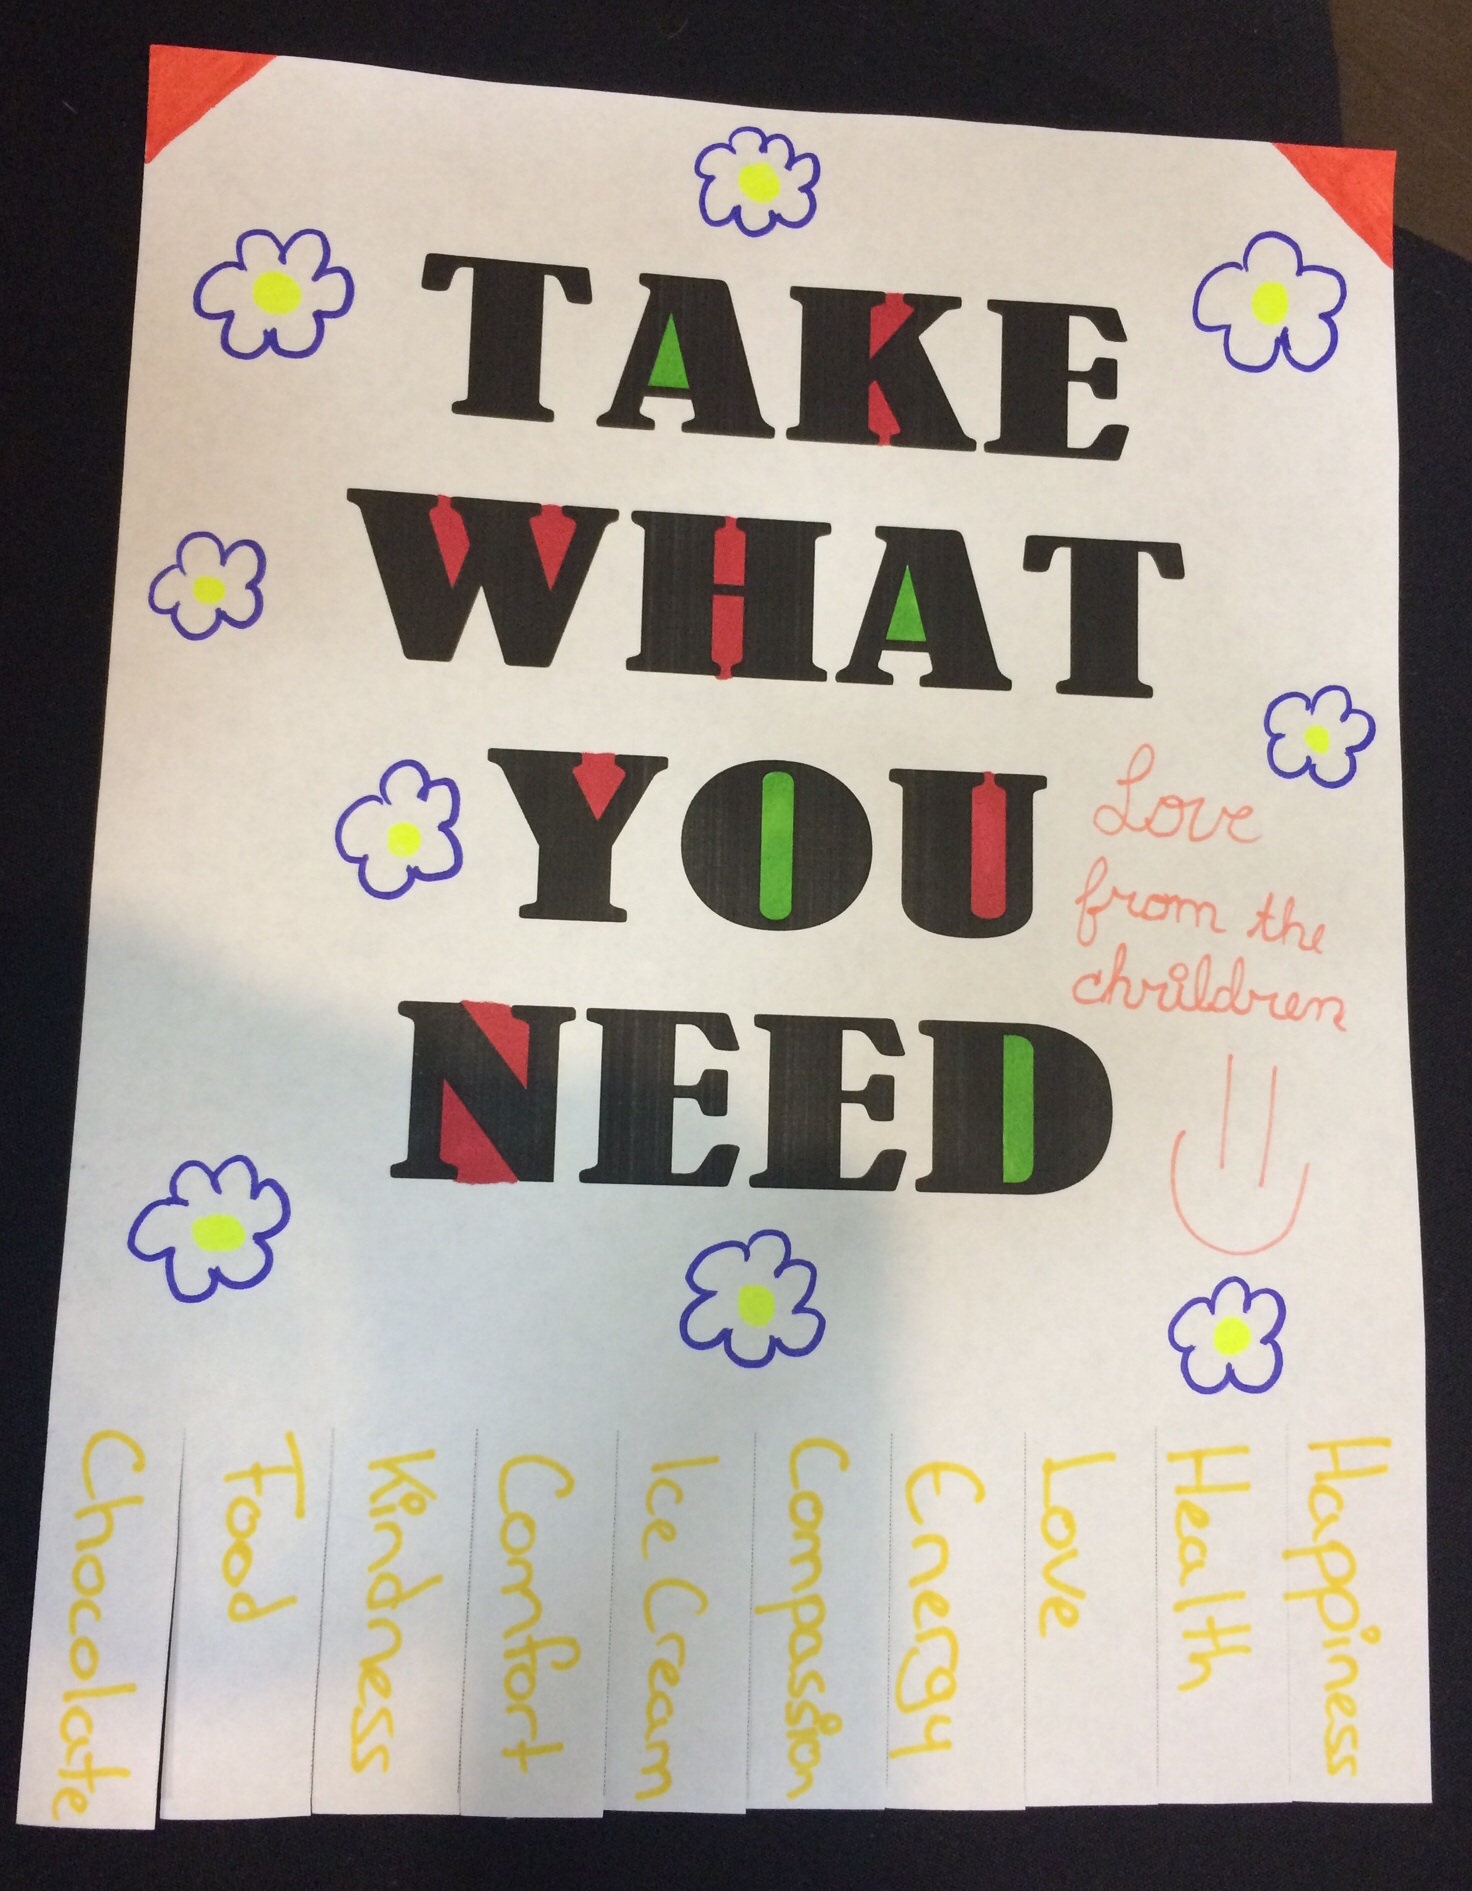 TAKE
WHAT
YOU
NEED
Love
from the
chrildren
Chocolate
Food
Kindness
Comfort
Ice Cream
Compassion
Energy
Love
Health
Happiness